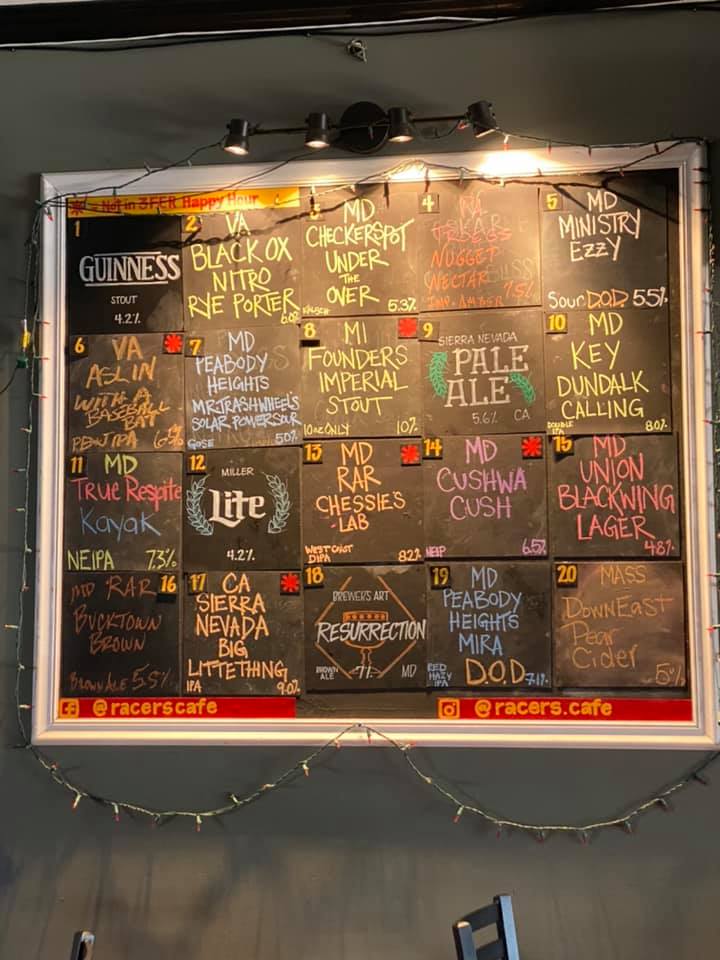 = Not in 3FER Happy Hour
1
GUINNESS
STOUT
4.2%
2
VA
BLACK OX
NITRO
RYE PORTER
3
MD
CHECKERSPOT
UNDER
THE
OVER
5.3%
4
NUGGET
NECTAR
IMP. AMBER 7.5%
5
MD
MINISTRY
EZZY
Sour D.O.D 5.5%
6
VA
ASLIN
WITH A
BASEBALL
BAT
IPA
7
MD
PEABODY
HEIGHTS
MR.TRASHWHEEL'S
SOLAR POWER SOUR
GOSE 5.0%
8
MI
FOUNDERS
IMPERIAL
STOUT
10oz ONLY 10%
9
SIERRA NEVADA
PALE
ALE
5.6% CA
10
MD
KEY
DUNDALK
CALLING
DOUBLE
IPA
8.0%
11
MD
True Respite
Kayak
NEIPA 7.3%
12
MILLER
Lite
4.2%
13
MD
RAR
CHESSIE'S
LAB
WEST COAST
DIPA
8.2%
14
MD
CUSHWA
CUSH
6.5%
15
MD
UNION
BLACKWING
LAGER
4.8%
MD RAR 16
BUCKTOWN
BROWN
BROWN ALE 5.5%
17
CA
SIERRA
NEVADA
BIG
LITTLETHING
IPA 9.0%
18
BREWER'S ART
RESURRECTION
BROWN
ALE
7%
MD
19
MD
PEABODY
HEIGHTS
MIRA
RED
HAZY
IPA
D.O.D 7.1%
20
MASS
DownEast
Pear
Cider
5%
@racerscafe
@racers.cafe